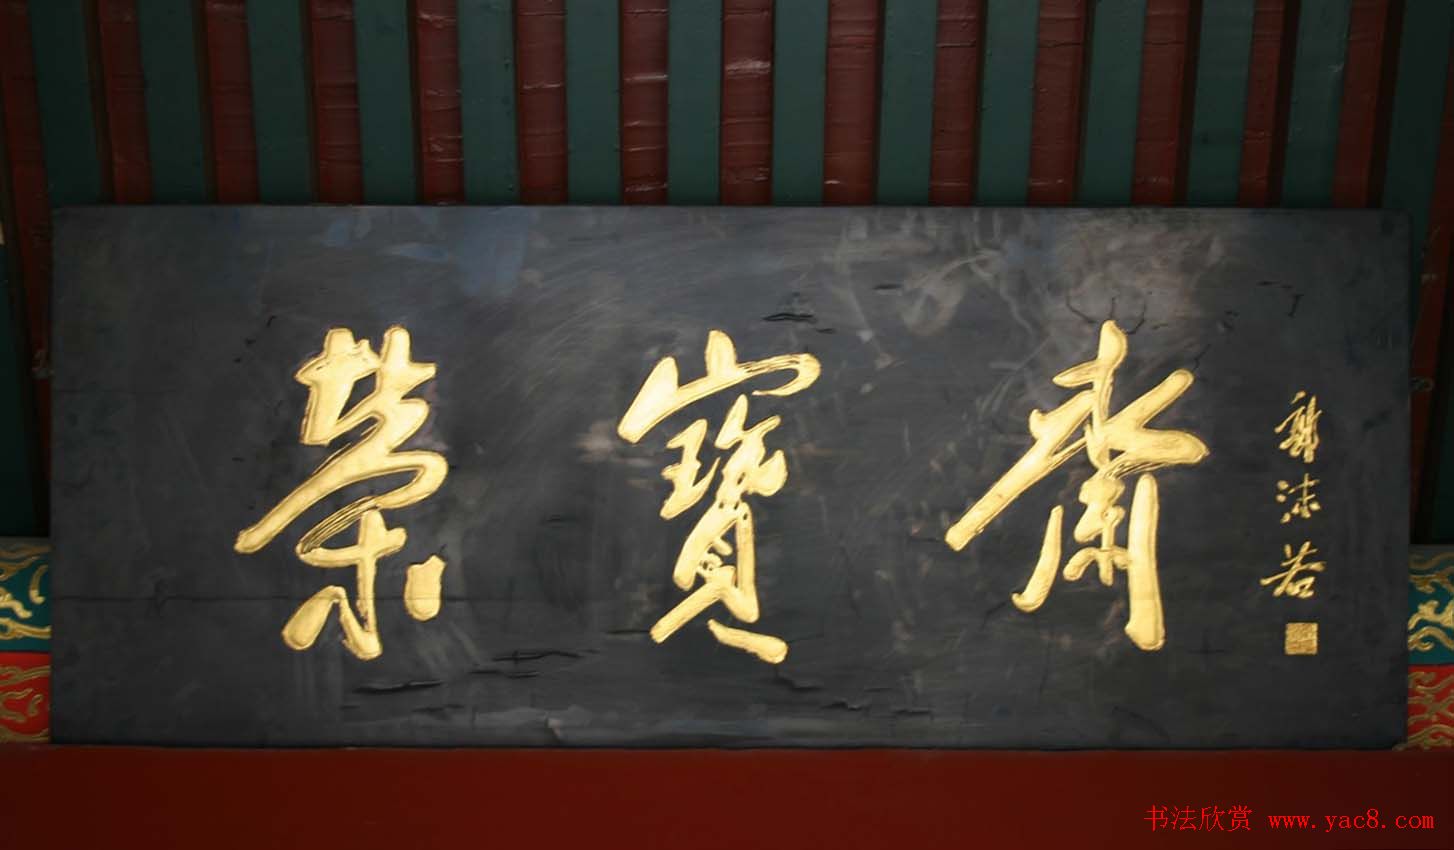 荣寶斋
郭沫若
书法欣赏 www.yac8.com